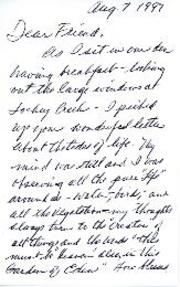 Aug 7 1997
Dear Friend,
As I sit in our den
having breakfast - looking
out the large windows at
Creek - I picked
up your wonderful letter
about the tides of life. My
mind was still and I was
observing all the pure "life"
around us - water, birds, and
all the vegetation - my thoughts
always turn to the "Creator of
all things" and the words "this
must be heaven" also, in this
"Garden of Eden"